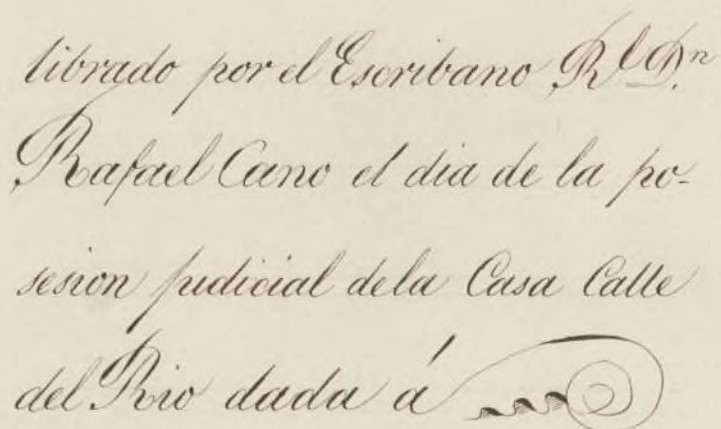 librado por el Escribano Rl Dn.
Rafael Cano el dia de la po-
sesion judicial dela Casa Calle
del Rio dada á